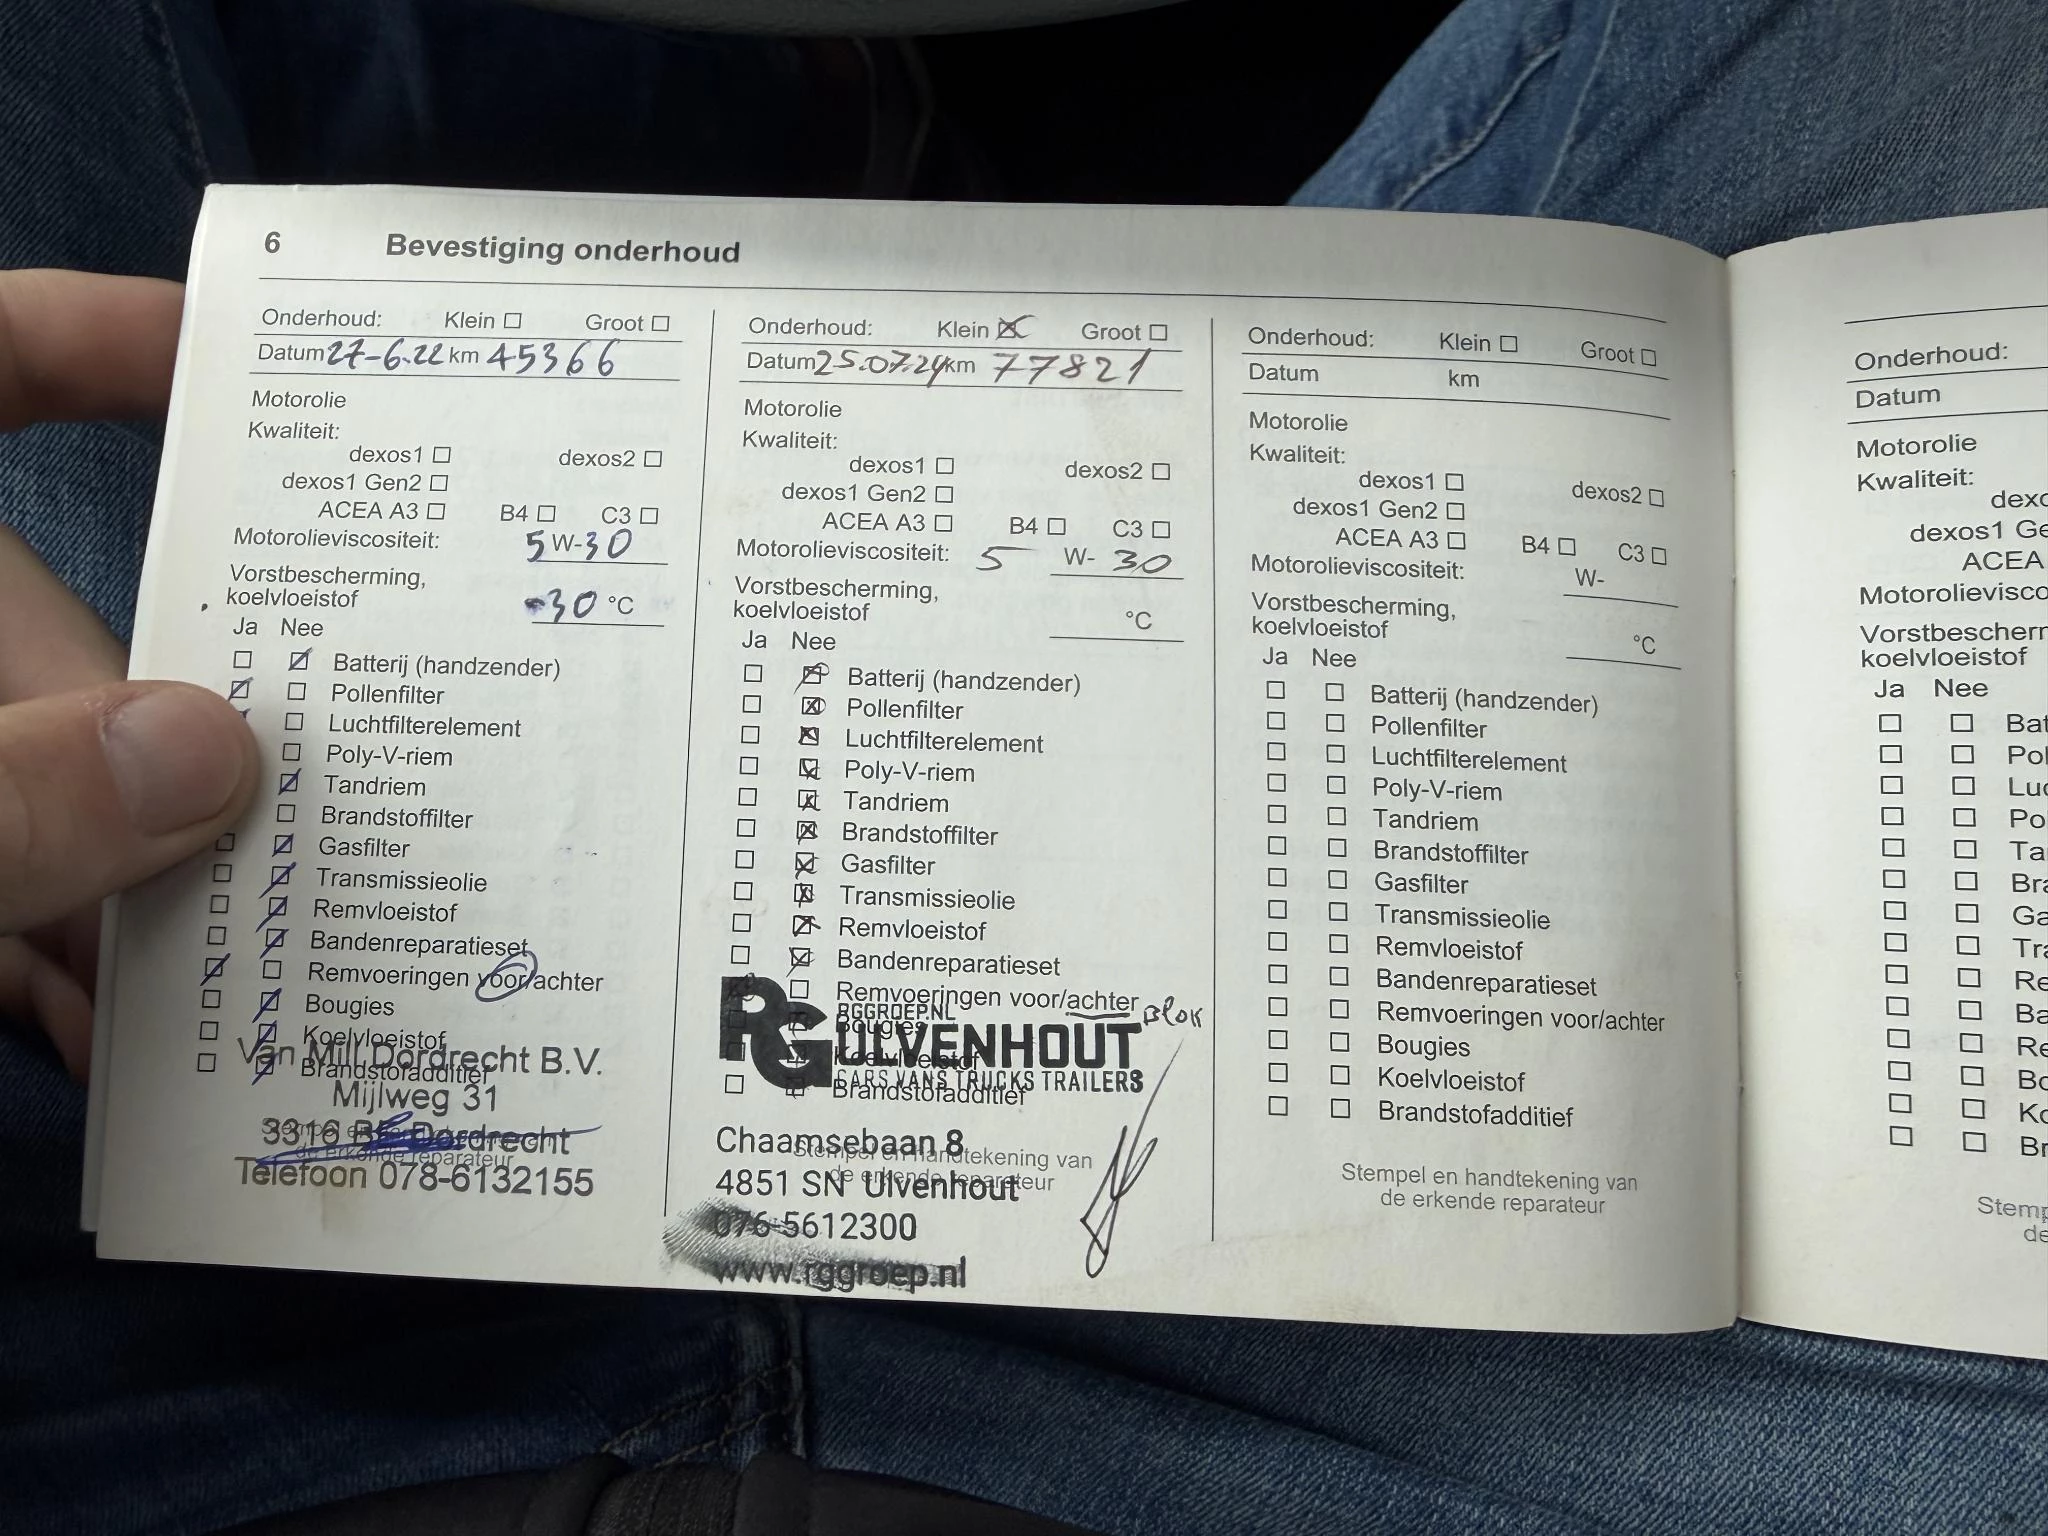 6 Bevestiging onderhoud
Onderhoud: Klein Groot
Datum 27-6-22 km 45366
Motorolie
Kwaliteit:
dexos1 dexos2
dexos1 Gen2
ACEA A3 B4 C3
Motorolieviscositeit: 5 W-30
Vorstbescherming,
koelvloeistof -30 °C
Ja Nee
Batterij (handzender)
Pollenfilter
Luchtfilterelement
Poly-V-riem
Tandriem
Brandstoffilter
Gasfilter
Transmissieolie
Remvloeistof
Bandenreparatieset
Remvoeringen voor/achter
Bougies
Koelvloeistof
Brandstofadditief
Van Mill Dordrecht B.V.
Mijlweg 31
3316 Dordrecht
Stempel en
de erkende reparateur
Telefoon 078-6132155
Onderhoud: Klein Groot
Datum 25.07.24 km 77821
Motorolie
Kwaliteit:
dexos1 dexos2
dexos1 Gen2
ACEA A3 B4 C3
Motorolieviscositeit: 5 W- 30
Vorstbescherming,
koelvloeistof °C
Ja Nee
Batterij (handzender)
Pollenfilter
Luchtfilterelement
Poly-V-riem
Tandriem
Brandstoffilter
Gasfilter
Transmissieolie
Remvloeistof
Bandenreparatieset
Remvoeringen voor/achter Blok
Bougies
Koelvloeistof
Brandstofadditief
RG
RGGROEP.NL
ULVENHOUT
CARS VANS TRUCKS TRAILERS
Chaamsebaan 8
Stempel en handtekening van
de erkende reparateur
4851 SN Ulvenhout
076-5612300
www.rggroep.nl
Onderhoud: Klein Groot
Datum km
Motorolie
Kwaliteit:
dexos1 dexos2
dexos1 Gen2
ACEA A3 B4 C3
Motorolieviscositeit: W-
Vorstbescherming,
koelvloeistof °C
Ja Nee
Batterij (handzender)
Pollenfilter
Luchtfilterelement
Poly-V-riem
Tandriem
Brandstoffilter
Gasfilter
Transmissieolie
Remvloeistof
Bandenreparatieset
Remvoeringen voor/achter
Bougies
Koelvloeistof
Brandstofadditief
Stempel en handtekening van
de erkende reparateur
Onderhoud:
Datum
Motorolie
Kwaliteit:
dexo
dexos1 Ge
ACEA
Motorolievisco
Vorstbescherm
koelvloeistof
Ja Nee
Bat
Pol
Luc
Po
Ta
Bra
Ga
Tra
Re
Ba
Re
Bo
Ko
Br
Stemp
de